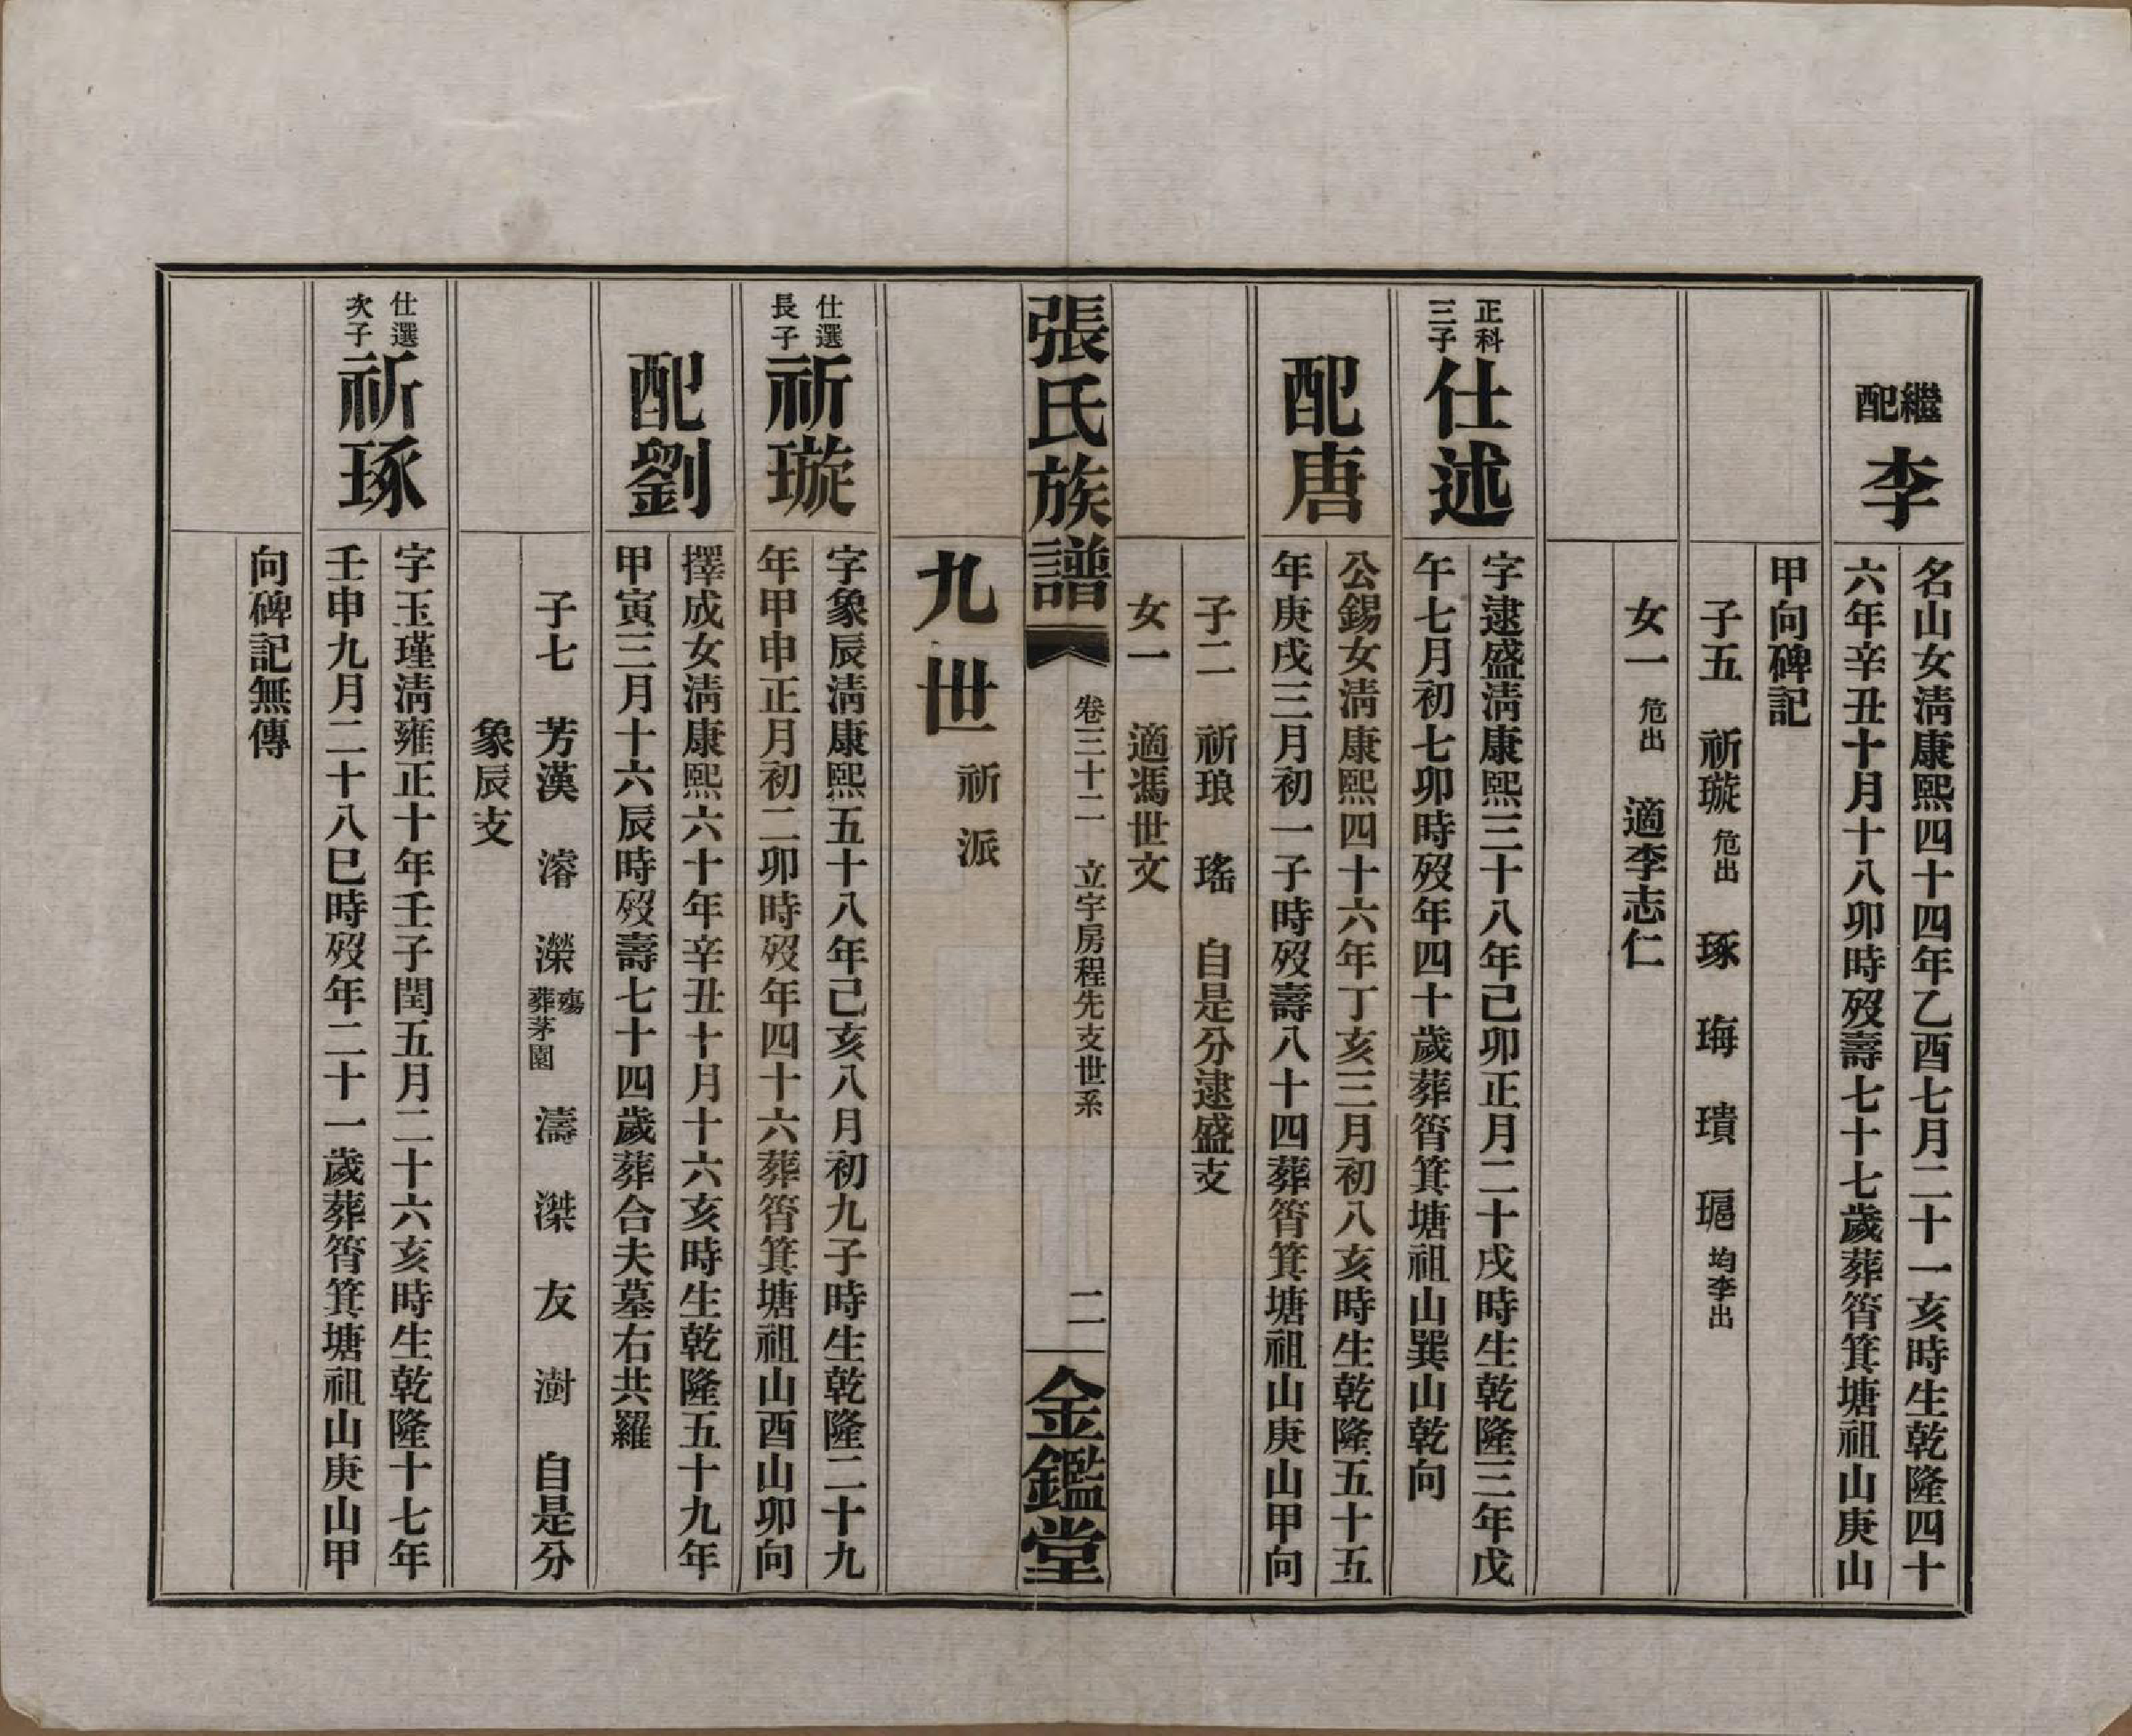 繼配 李
名山女淸康熙四十四年乙酉七月二十一亥時生乾隆四十
六年辛丑十月十八卯時歿壽七十七歲葬筲箕塘祖山庚山
甲向碑記
子五 祈璇 危出 琢 珻 璝 琩 均李出
女一 危出 適李志仁
正科三子 仕述
字逮盛淸康熙三十八年己卯正月二十戌時生乾隆三年戊
午七月初七卯時歿年四十歲葬筲箕塘祖山巽山乾向
配唐
公錫女淸康熙四十六年丁亥三月初八亥時生乾隆五十五
年庚戌三月初一子時歿壽八十四葬筲箕塘祖山庚山甲向
子二 祈琅 瑤 自是分逮盛支
女一 適馮世文
張氏族譜 卷三十二 立宇房程先支世系 二 金鑑堂
九世 祈派
仕選長子 祈璇
字象辰淸康熙五十八年己亥八月初九子時生乾隆二十九
年甲申正月初二卯時歿年四十六葬筲箕塘祖山酉山卯向
配劉
擇成女淸康熙六十年辛丑十月十六亥時生乾隆五十九年
甲寅三月十六辰時歿壽七十四歲葬合夫墓右共羅
子七 芳漢 濬 濚 殤葬茅園 濤 滐 友 澍 自是分
象辰支
仕選次子 祈琢
字玉瑾淸雍正十年壬子閏五月二十六亥時生乾隆十七年
壬申九月二十八巳時歿年二十一歲葬筲箕塘祖山庚山甲
向碑記無傳